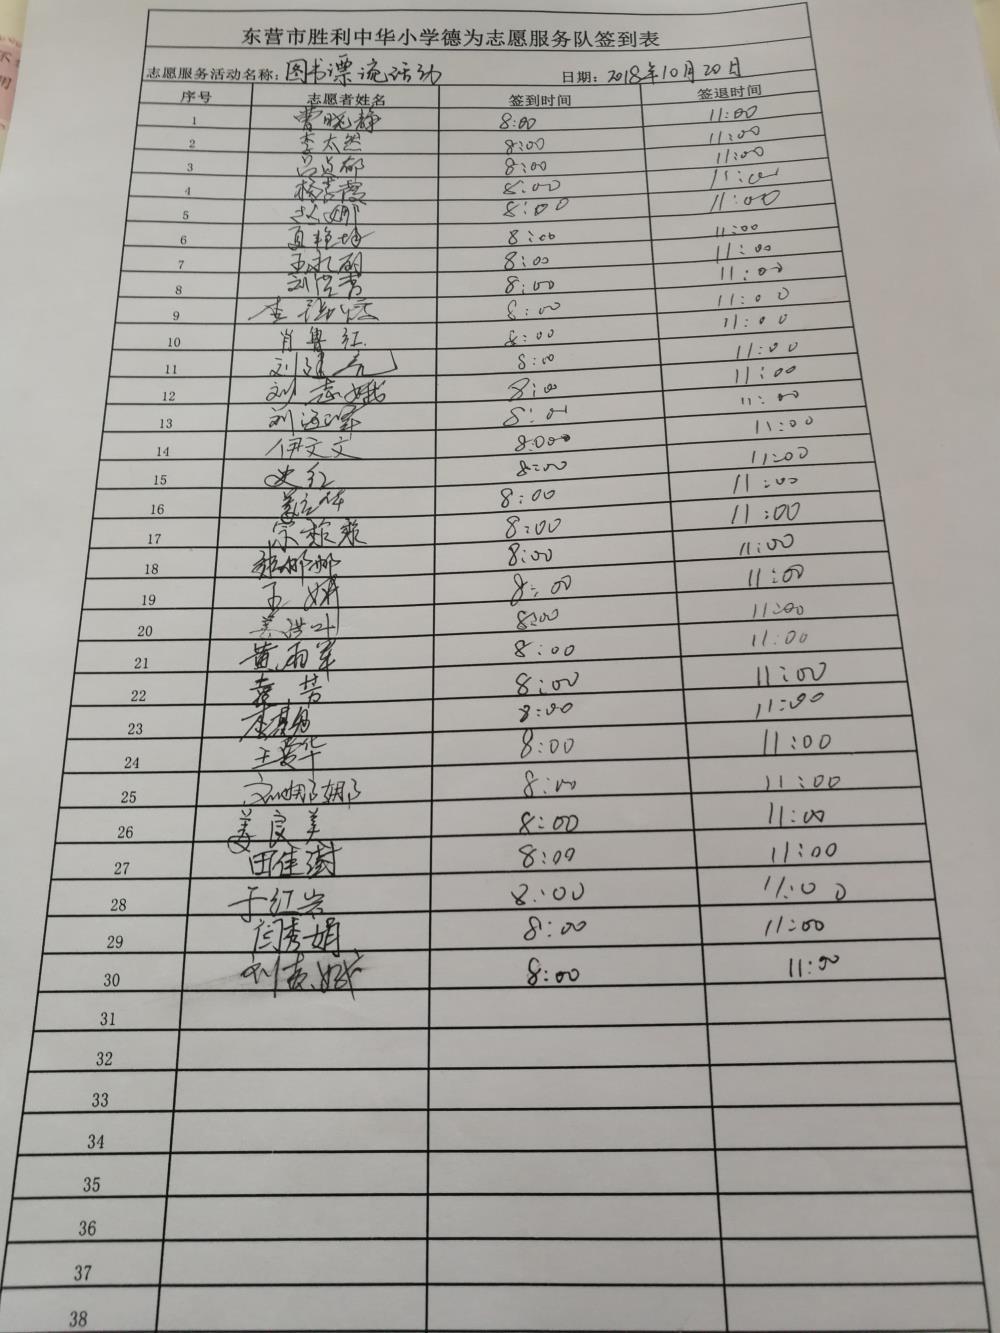 东营市胜利中华小学德为志愿服务队签到表
志愿服务活动名称：图书漂流活动 日期：2018年10月20日
序号 志愿者姓名 签到时间 签退时间
1 曹晓静 8:00 11:00
2 李太然 8:00 11:00
3 8:00 11:00
4 杨春霞 8:00 11:00
5 娜 8:00 11:00
6 夏艳坤 8:00 11:00
7 王 8:00 11:00
8 刘 8:00 11:00
9 李 8:00 11:00
10 肖鲁红 8:00 11:00
11 刘建亮 8:00 11:00
12 刘志娥 8:00 11:00
13 刘海军 8:00 11:00
14 伊文文 8:00 11:00
15 史红 8:00 11:00
16 姜 8:00 11:00
17 宗 8:00 11:00
18 张娜娜 8:00 11:00
19 王娟 8:00 11:00
20 姜洪叶 8:00 11:00
21 黄雨军 8:00 11:00
22 袁芳 8:00 11:00
23 8:00 11:00
24 王爱华 8:00 11:00
25 刘娜娜 8:00 11:00
26 姜良美 8:00 11:00
27 田佳 8:00 11:00
28 于红岩 8:00 11:00
29 闫秀娟 8:00 11:00
30 刘 8:00 11:00
31
32
33
34
35
36
37
38